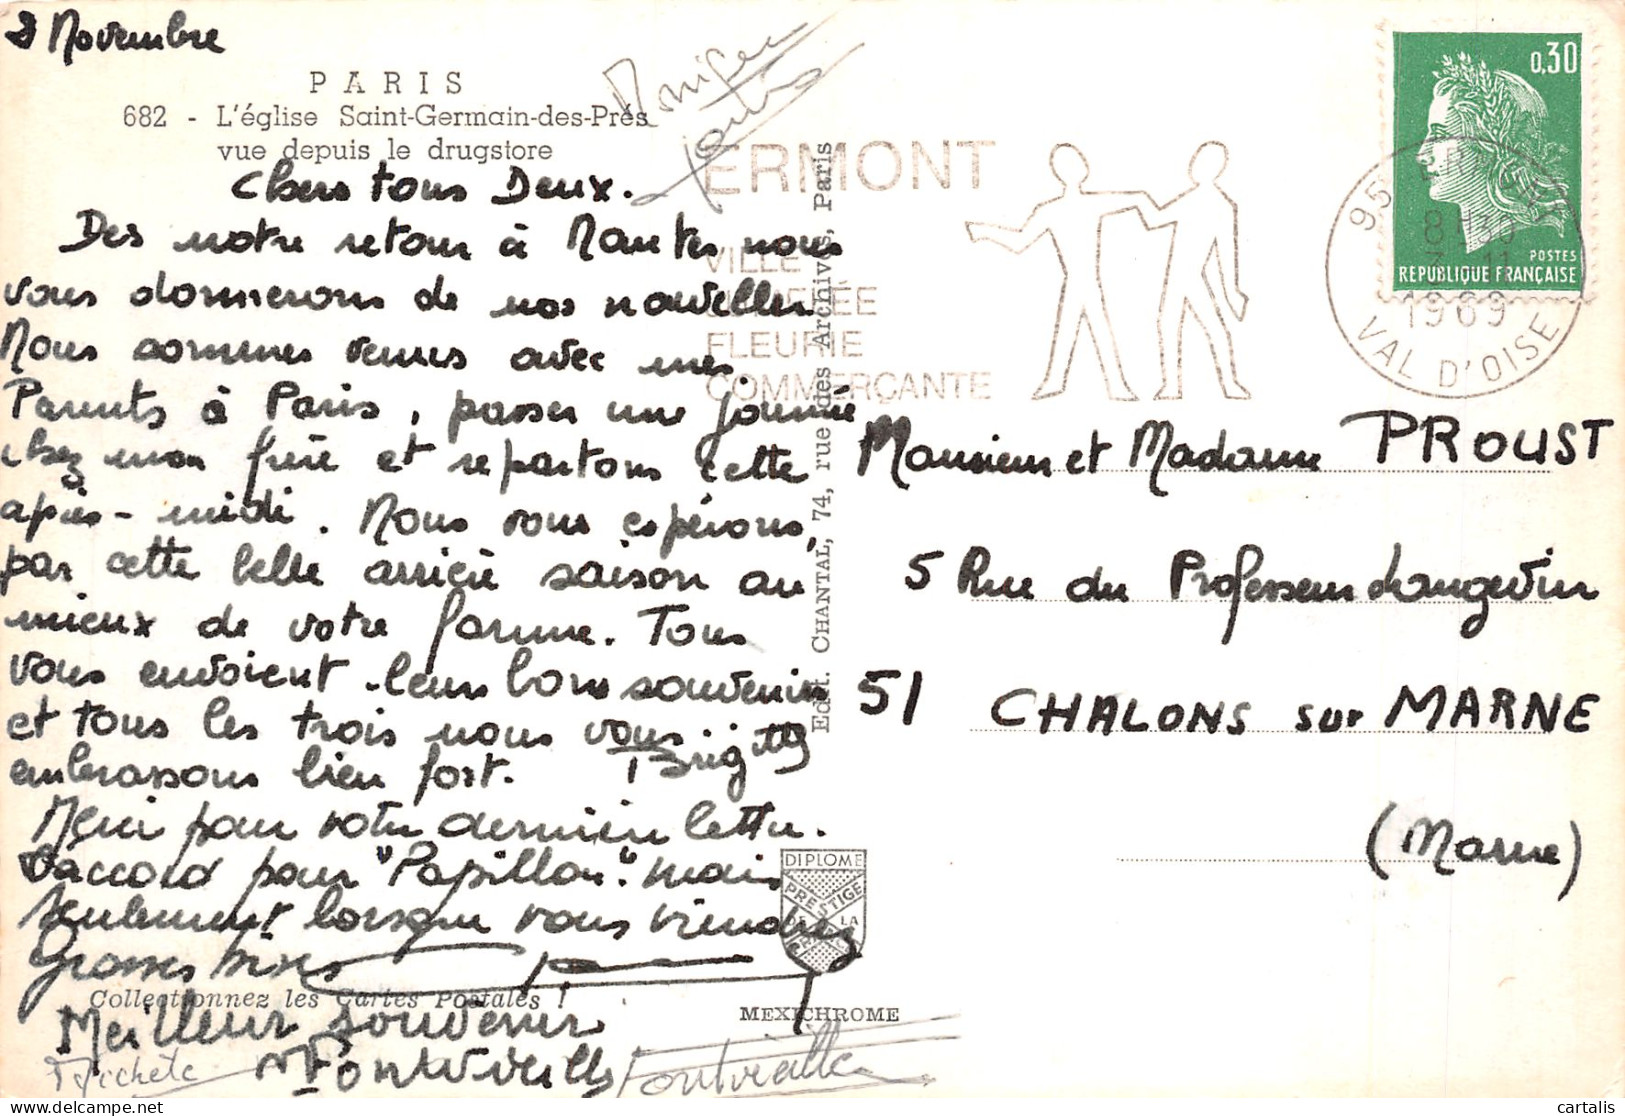 2 Novembre
PARIS
682 - L'église Saint-Germain-des-Prés
vue depuis le drugstore
Chers tous Deux.
Dès notre retour à Nantes nous
vous donnerons de nos nouvelles
Nous sommes venus avec mes
Parents à Paris, passer une journée
chez mon frère et repartons cette
après-midi. Nous vous espérons,
par cette belle arrière saison au
mieux de votre forme. Tous
vous envoient leurs bons souvenirs
et tous les trois nous vous
embrassons bien fort. Brigitte
Merci pour votre dernière lettre.
D'accord pour "Papillon". mais
seulement lorsque vous viendrez
Grosses bises
Collectionnez les Cartes Postales !
Meilleur souvenir
Michèle
Fontvieille
Fontvieille
Edit. CHANTAL, 74, rue des Archives, Paris
DIPLOME
PRESTIGE
DE LA
FRANCE
MEXICHROME
ERMONT
VILLE
FLEURIE
COMMERÇANTE
0,30
POSTES
REPUBLIQUE FRANÇAISE
95
8H30
11
1969
VAL D'OISE
Monsieur et Madame PROUST
5 Rue du Professeur Langevin
51 CHALONS sur MARNE
(Marne)
cartalis